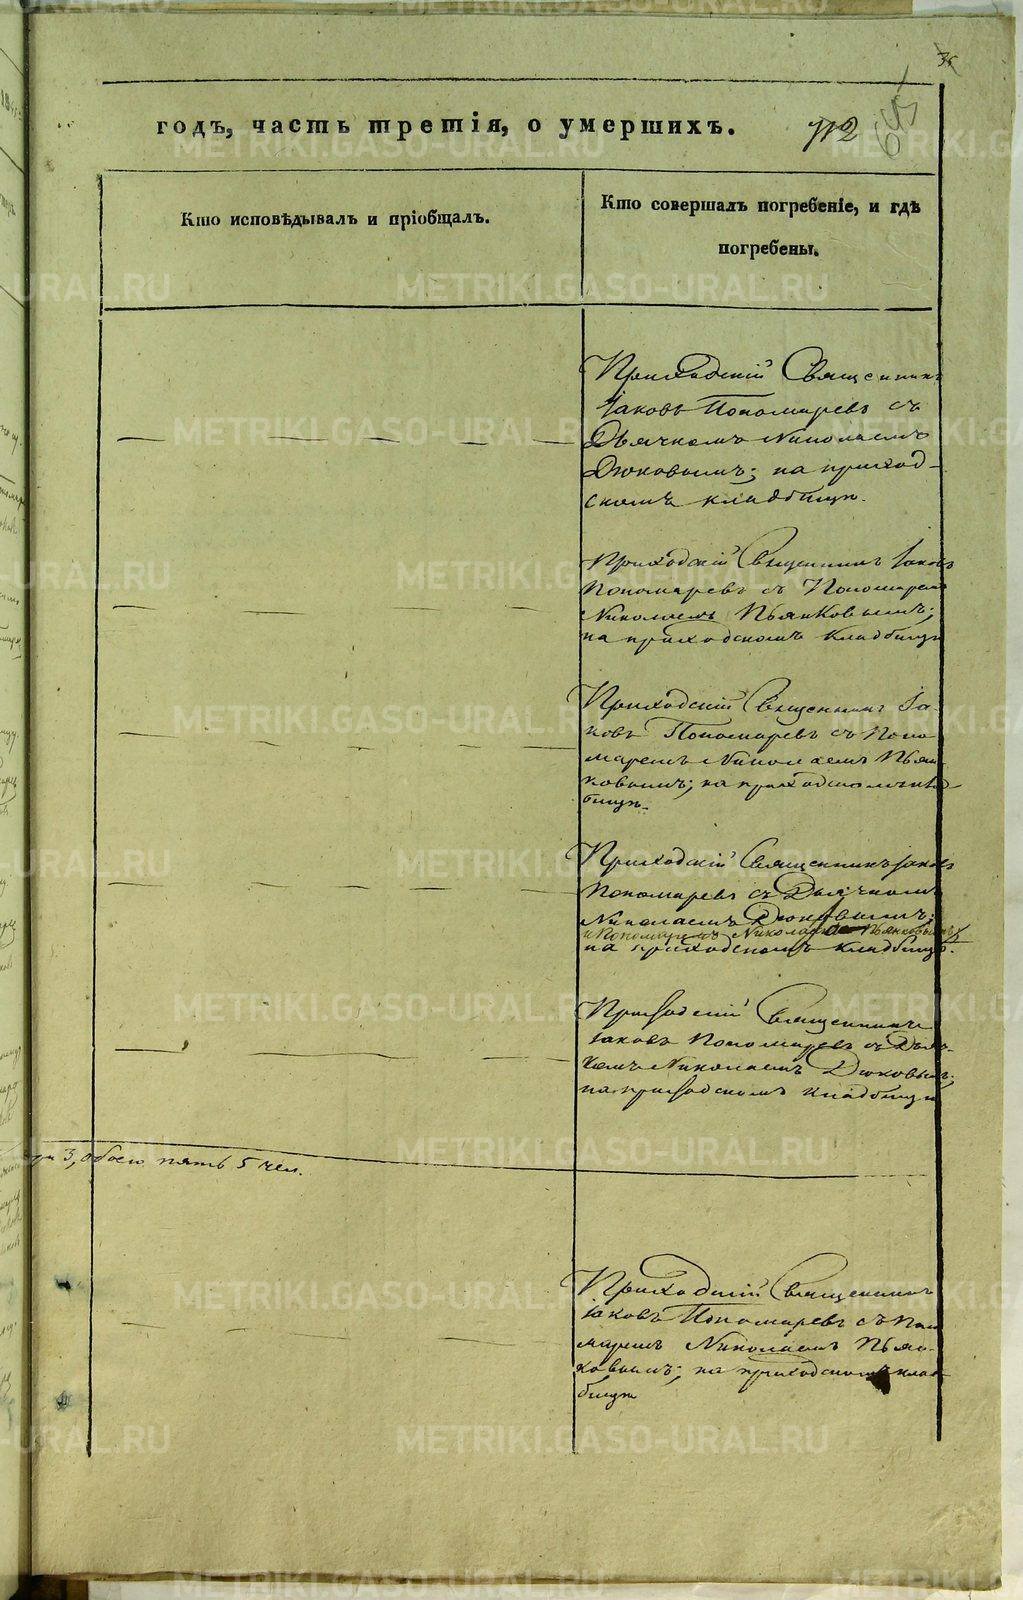 годъ, часть третія, о умершихъ.
712
Кто исповѣдывалъ и пріобщалъ.
Кто совершалъ погребеніе, и гдѣ
погребены.
Приходскій Священникъ
Іаковъ Пономаревъ съ
Дьячкомъ Николаемъ
Дюковымъ; на приход-
скомъ кладбищѣ.
Приходскій Священникъ Іаковъ
Пономаревъ съ Пономаремъ
Николаемъ Пьянковымъ;
на приходскомъ кладбищѣ
Приходскій Священникъ Іа-
ковъ Пономаревъ съ Поно-
маремъ Николаемъ Пьян-
ковымъ; на приходскомъ клад-
бищѣ.
Приходскій Священникъ Іаковъ
Пономаревъ съ Дьячкомъ
Николаемъ Дюковымъ;
и Пономаремъ Николаемъ Пьянковымъ
на приходскомъ кладбищѣ.
Приходскій Священникъ
Іаковъ Пономаревъ съ Дьяч-
комъ Николаемъ Дюковымъ;
на приходскомъ кладбищѣ
3, обоего пять 5 чел.
Приходскій Священникъ
Іаковъ Пономаревъ съ Поно
маремъ Николаемъ Пьян-
ковымъ; на приходскомъ клад
бищѣ
METRIKI.GASO-URAL.RU